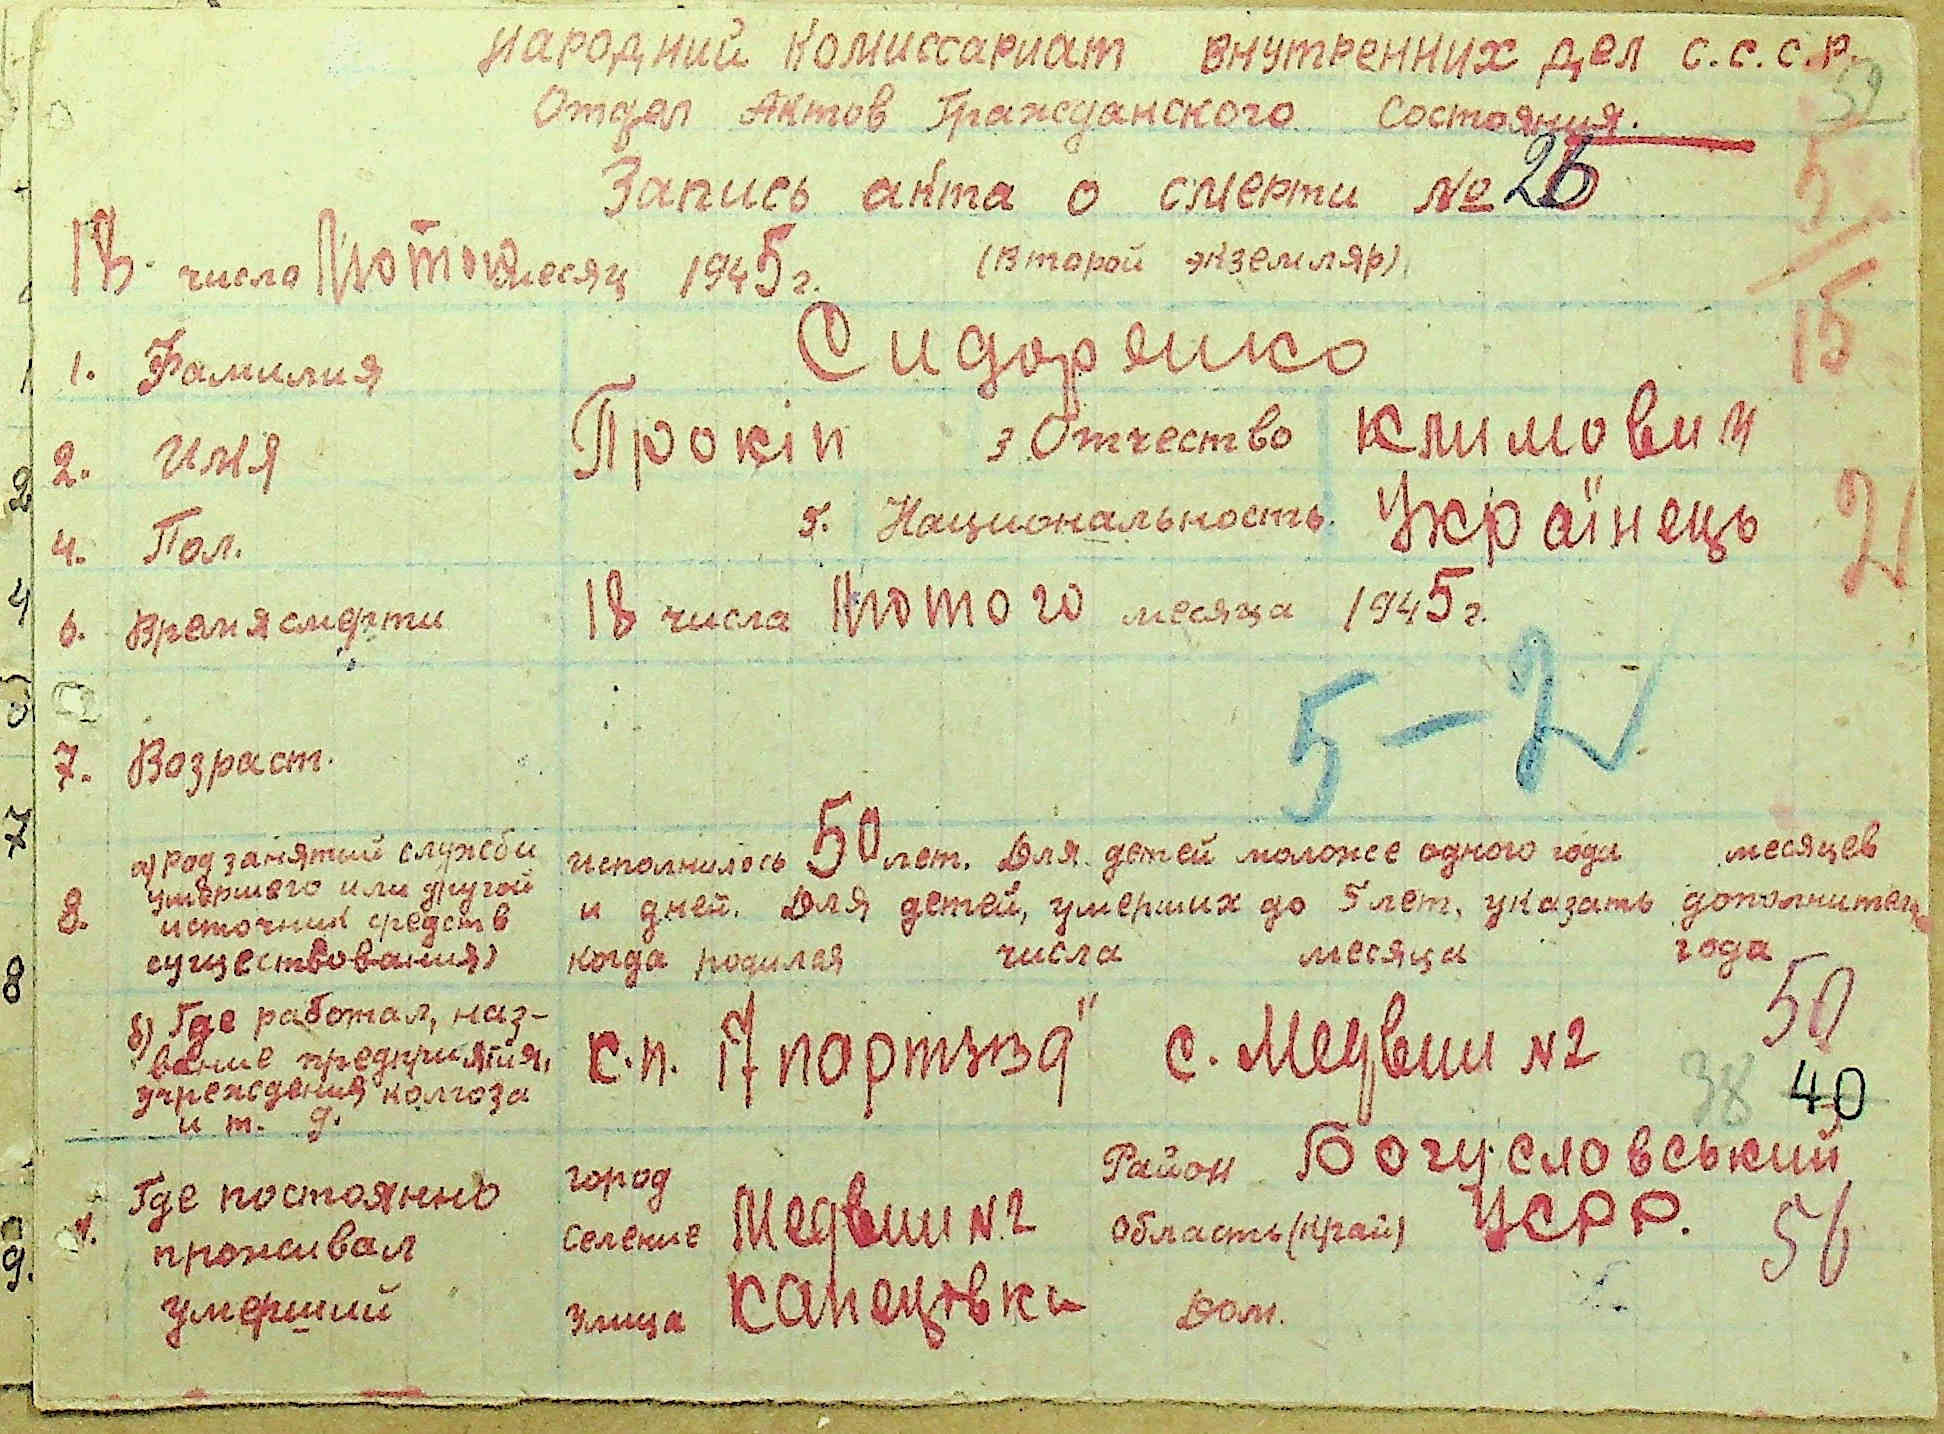 Народний Комиссариат Внутренних дел С.С.С.Р.
52
Отдел Актов Гражданского Состояния.
Запись акта о смерти № 26
5/15
18 число Лютого месяц 1945 г. (Второй экземляр)
1. Фамилия Сидоренко
2. Имя Прокіп 3 Отчество Климович
4. Пол. 5. Национальность. Українець
2
6. Время смерти 18 числа Лютого месяца 1945 г.
5-2
7. Возраст.
8. а) Род занятий службы
умершего или другой
источник средств
существования)
исполнилось 50 лет. Для детей моложе одного года месяцев
и дней. Для детей, умерших до 5 лет, указать дополнител
когда родился числа месяца года
50
б) Где работал, наз-
вание предприятия,
учреждения колгоза
и т. д.
к.п. 17 партзїзд" с. Медвин №2
38 40
Где постоянно
проживал
умерший
город Район Богуславський
селение Медвин №2 Область (край) УСРР.
56
улица Дом.